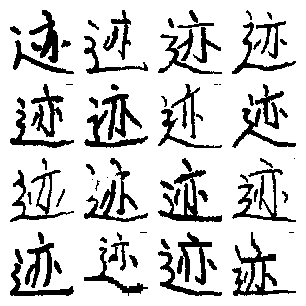 迹迹迹迹
迹迹迹迹
迹迹迹迹
迹迹迹迹